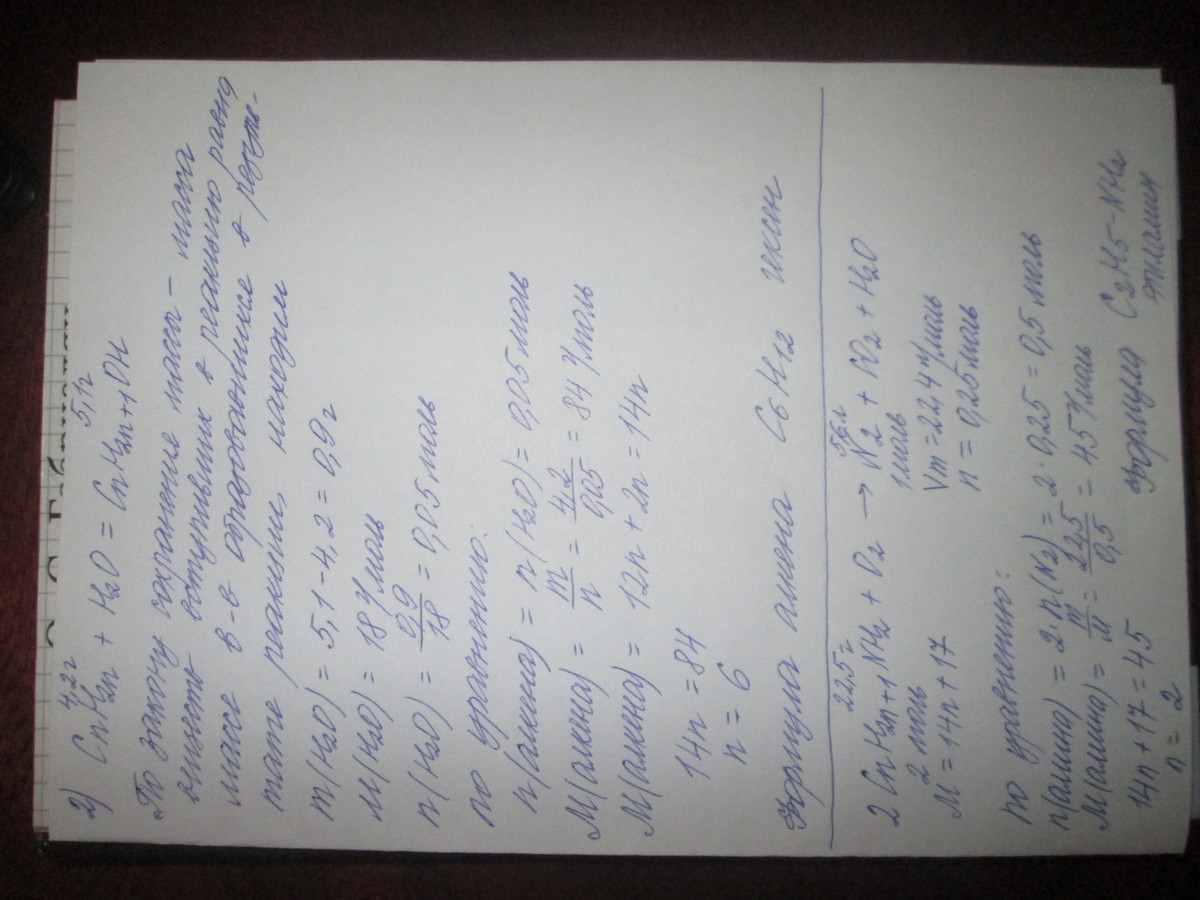 4,2г 5,1г
2) CnH2n + H2O = CnH2n+1OH
По закону сохранения масса – масса
веществ вступивших в реакцию равна
массе в-в образовавшихся в резуль-
тате реакции, находим
m(H2O) = 5,1-4,2 = 0,9 г
M(H2O) = 18 г/моль
n(H2O) = 0,9/18 = 0,05 моль
по уравнению:
n(алкена) = n(H2O) = 0,05 моль
M(алкена) = m/n = 4,2/0,05 = 84 г/моль
M(алкена) = 12n + 2n = 14n
14n = 84
n = 6
Формула алкена C6H12 гексен
22,5г 5,6л
2 CnH2n+1NH2 + O2 → N2 + CO2 + H2O
2 моль 1 моль
M = 14n + 17 Vm = 22,4 л/моль
n = 0,25 моль
по уравнению:
n(амина) = 2·n(N2) = 2·0,25 = 0,5 моль
M(амина) = m/M = 22,5/0,5 = 45 г/моль
14n + 17 = 45 Формула C2H5-NH2
n = 2 этиламин